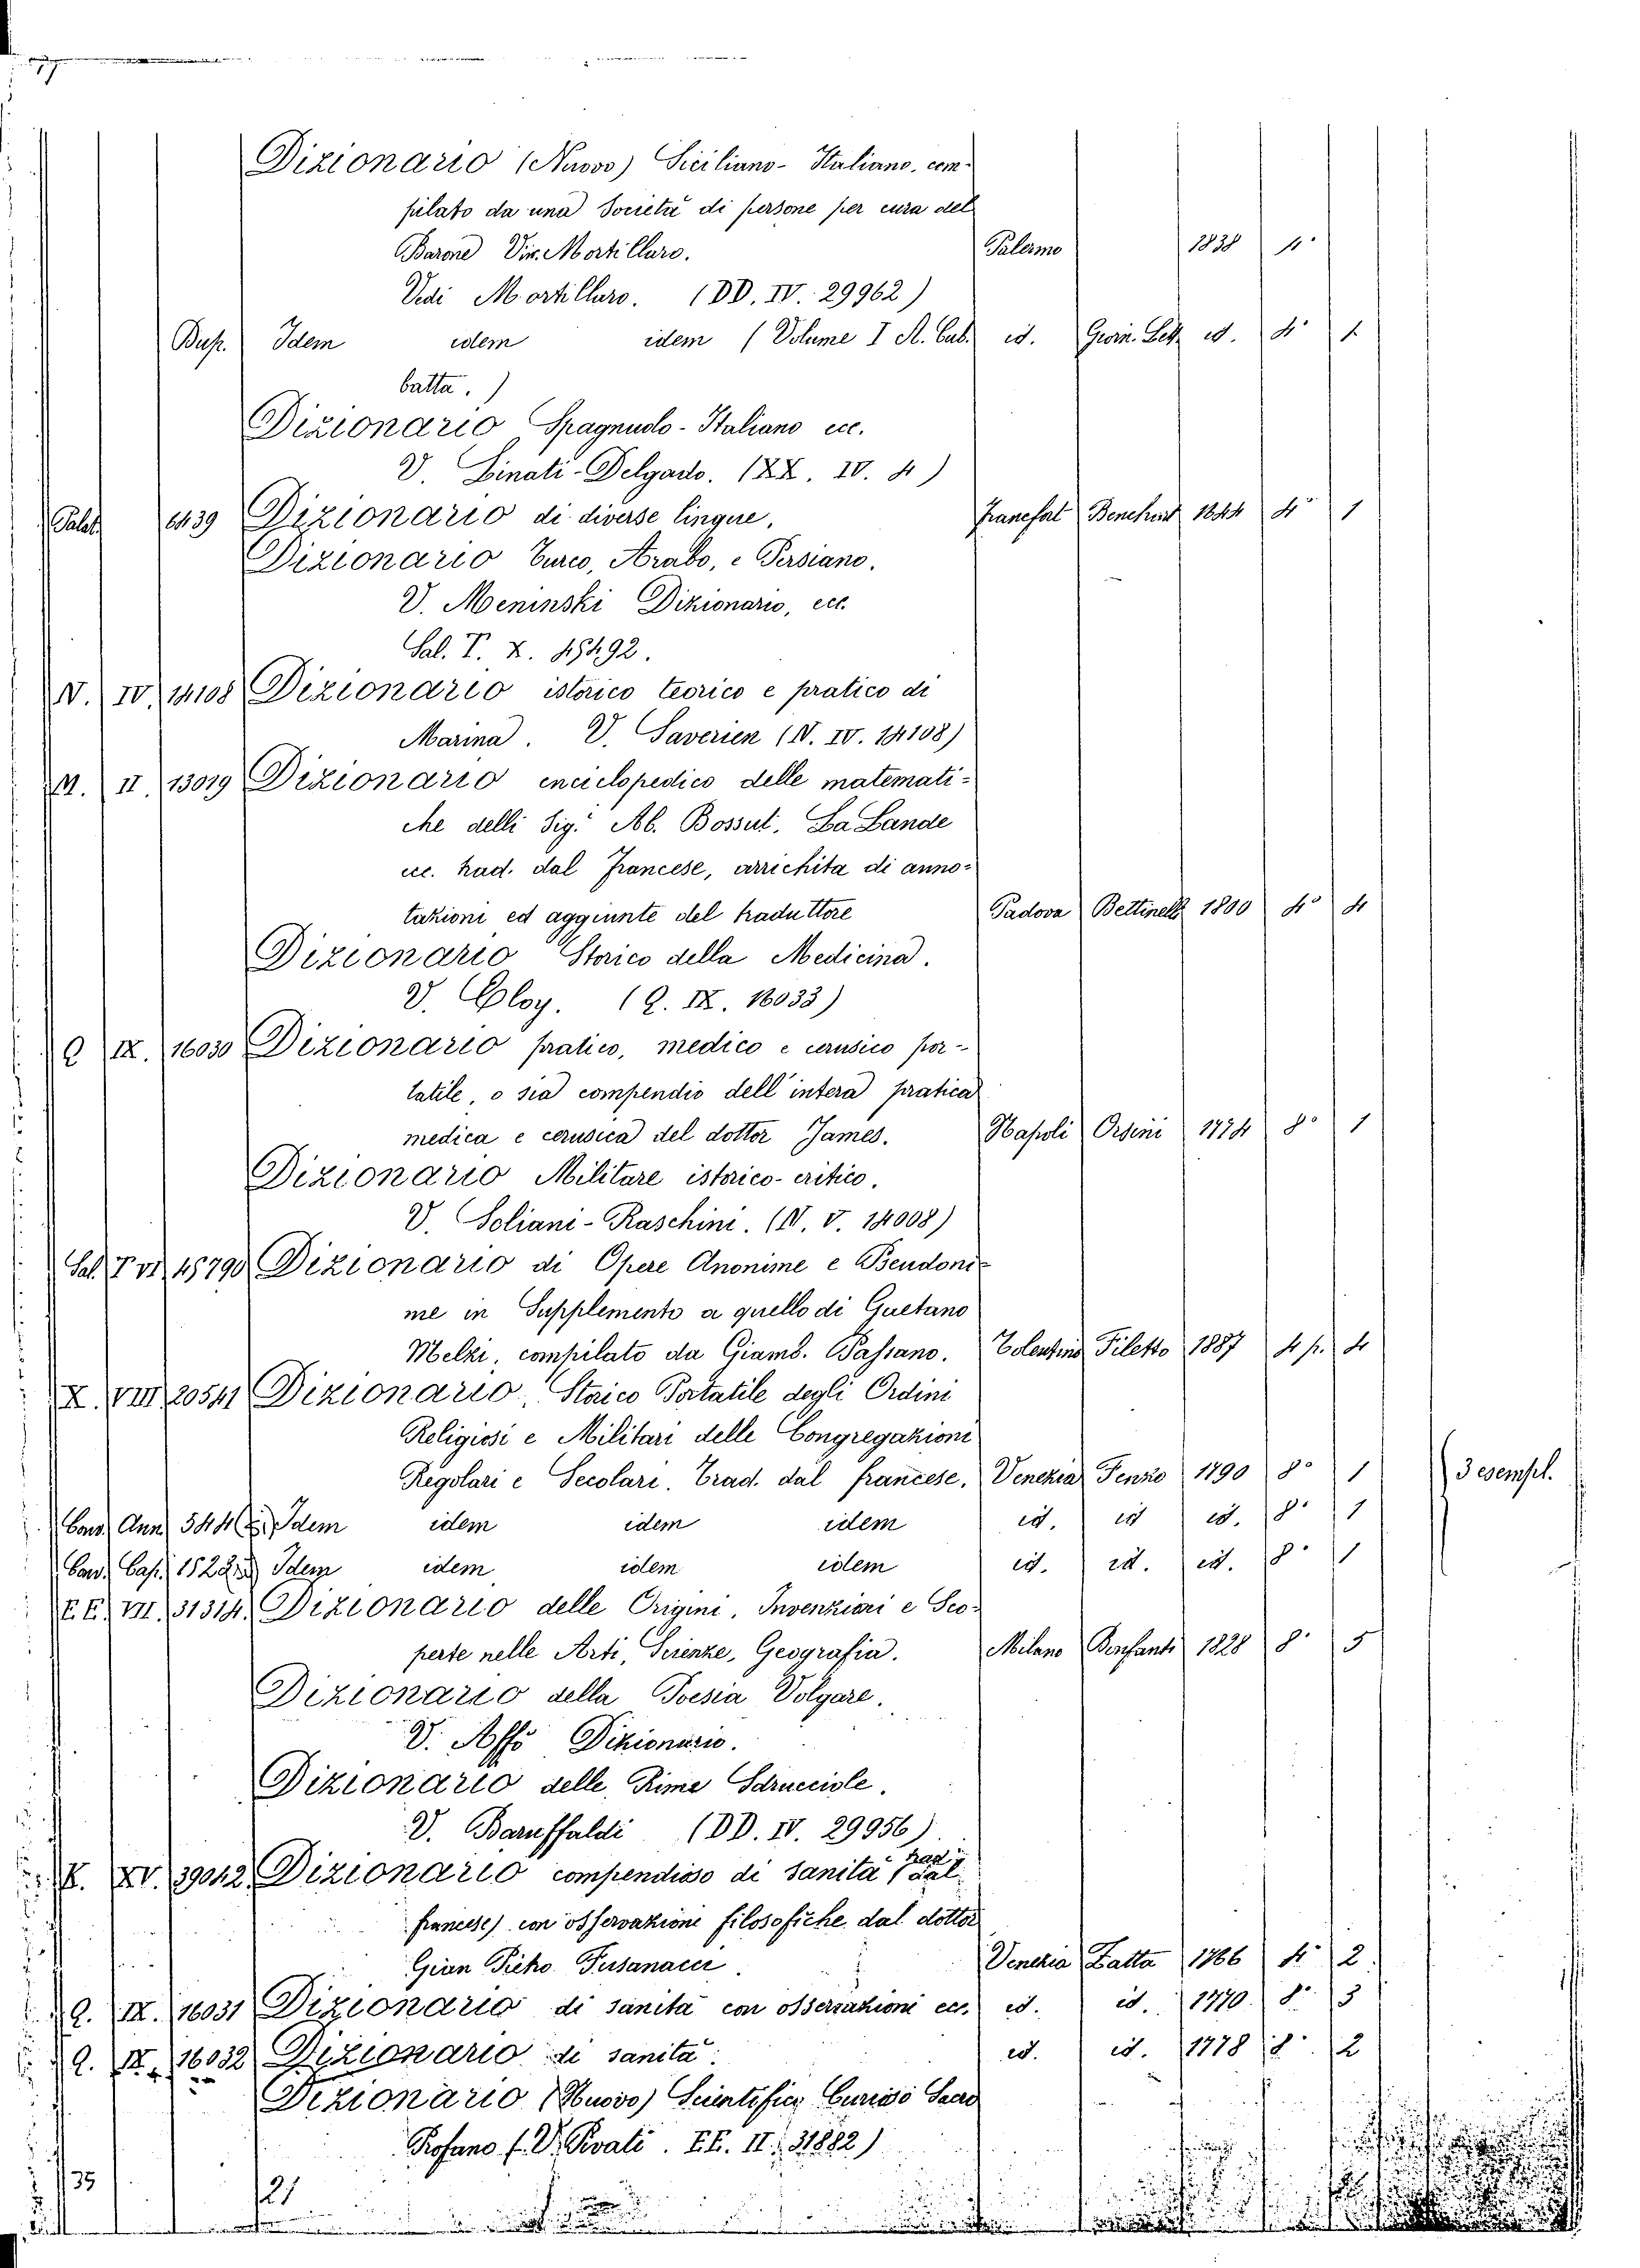 Dizionario (Nuovo) Siciliano-Italiano, com-
pilato da una Società di persone per cura del
Barone Vin. Mortillaro. Palermo 1838 4°
Vedi Mortillaro. (DD. IV. 29962)
Bup. Idem idem idem (Volume I A. Cub. id. Giorn. Lett. id. 4° 1
batta.)
Dizionario Spagnuolo-Italiano ecc.
V. Linati-Delgado. (XX. IV. 4)
Palat. 6439 Dizionario di diverse lingue. Francfort 1644 4° 1
Dizionario Turco, Arabo, e Persiano.
V. Meninski Dizionario, ecc.
Sal. T. X. 45492.
N. IV. 14108 Dizionario istorico teorico e pratico di
Marina. V. Saverien (N. IV. 14108)
M. II. 13019 Dizionario enciclopedico delle matemati=
che delli Sig.i Ab. Bossut, La Lande
ecc. trad. dal francese, arrichita di anno=
tazioni ed aggiunte del traduttore Padova Bettinelli 1800 4° 4
Dizionario Storico della Medicina.
V. Eloy. (Q. IX. 16033)
Q IX. 16030 Dizionario pratico, medico e cerusico por-
tatile, o sia compendio dell'intera pratica
medica e cerusica del dottor James. Napoli Orsini 1774 8° 1
Dizionario Militare istorico-critico.
V. Soliani-Raschini. (N. V. 14008)
Sal. T VI 45790 Dizionario di Opere Anonime e Pseudoni-
me in Supplemento a quello di Gaetano
Melzi, compilato da Giamb. Passano. 1887 4 p. 4
X. VIII 20541 Dizionario, Storico Portatile degli Ordini
Religiosi e Militari delle Congregazioni
Regolari e Secolari. Trad. dal francese. Venezia Fenzo 1790 8° 1 3 esempl.
Cons. Ann. 544 Idem idem idem idem id. id id. 8° 1
Cons. Cap. 1522 Idem idem idem idem id. id. id. 8° 1
E.E. VII. 31314. Dizionario delle Origini, Invenzioni e Sco-
perte nelle Arti, Scienze, Geografia. Milano Bonfanti 1828 8° 5
Dizionario della Poesia Volgare.
V. Affò Dizionario.
Dizionario delle Rime Sdrucciole.
V. Baruffaldi (DD. IV. 29956)
XV. 39042 Dizionario compendioso di sanità (trad. dal
francese) con osservazione filosofiche dal dottor
Gian Pietro Fusanacci. Venezia Zatta 1766 4° 2
Q. IX. 16031 Dizionario di sanità con osservazioni ecc. id. id. 1770 8° 3
Q. IX. 16032 Dizionario di sanità. id. id. 1778 8° 2
Dizionario (Nuovo) Scientifico Curioso Sacro
Profano (V. Pivati. EE. II. 31882)
35 21